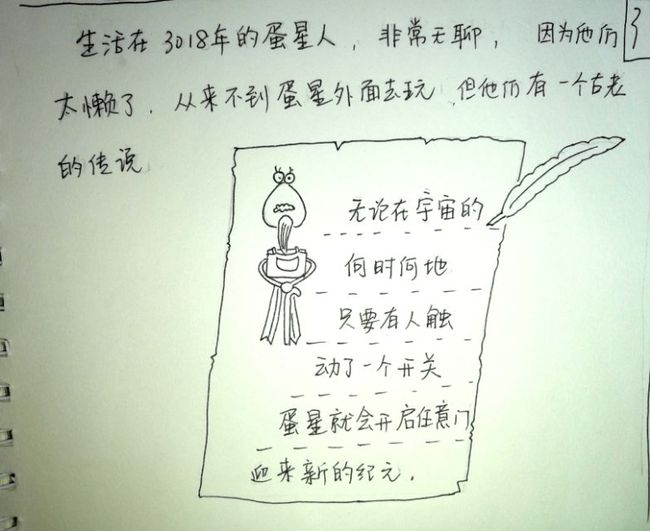 生活在3018年的蛋星人，非常无聊，因为他们
3
太懒了．从来不到蛋星外面去玩．但他们有一个古老
的传说
无论在宇宙的
何时何地
只要有人触
动了一个开关
蛋星就会开启任意门
迎来新的纪元．